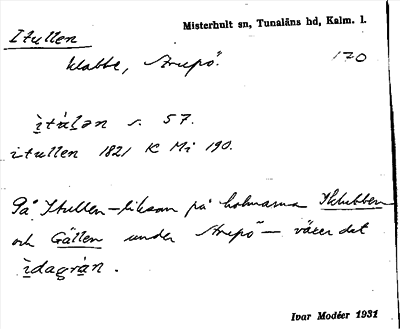 Misterhult sn, Tunaläns hd, Kalm. l.
Itullen
klabbe, Strupö.
170
ìtálən s. 57.
itullen 1821 K Mi 190.
På Itullen – liksom på holmarna Iklubben
och Gällen under Strupö – växer det
ìdagràn.
Ivar Modéer 1931